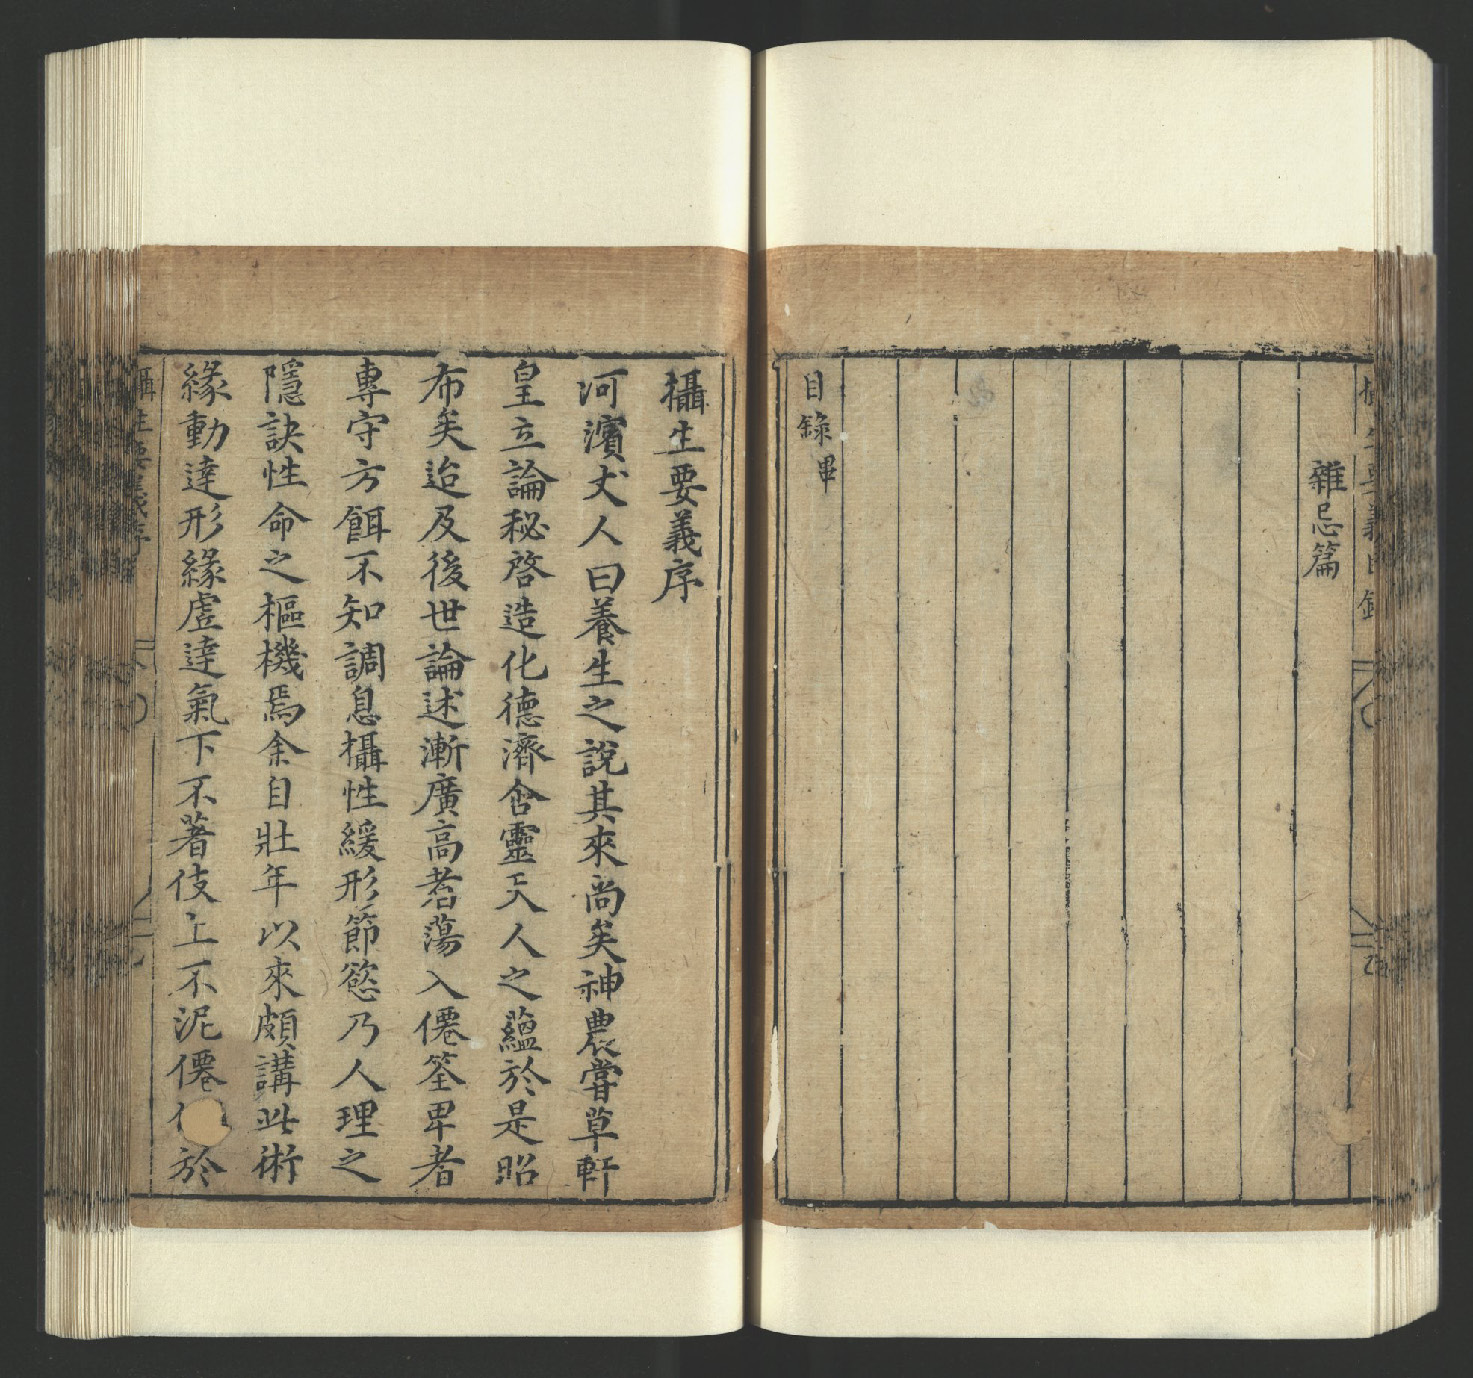 雜忌篇
目錄畢
攝生要義序
河濱丈人曰養生之說其來尚矣神農嘗草軒
皇立論秘啓造化德濟含靈天人之蘊於是昭
布矣迨及後世論述漸廣高者蕩入僊筌卑者
專守方餌不知調息攝性緩形節慾乃人理之
隱訣性命之樞機焉余自壯年以來頗講此術
緣動達形緣虛達氣下不著伎上不泥僊 於